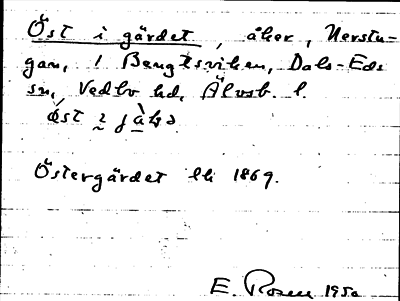 Öst i gärdet, åker, Nerstu-
gan, 1 Bengtsviken, Dals-Eds
sn, Vedbo hd, Älvsb. l.
Östergärdet lk 1869.
E. Rosen 195